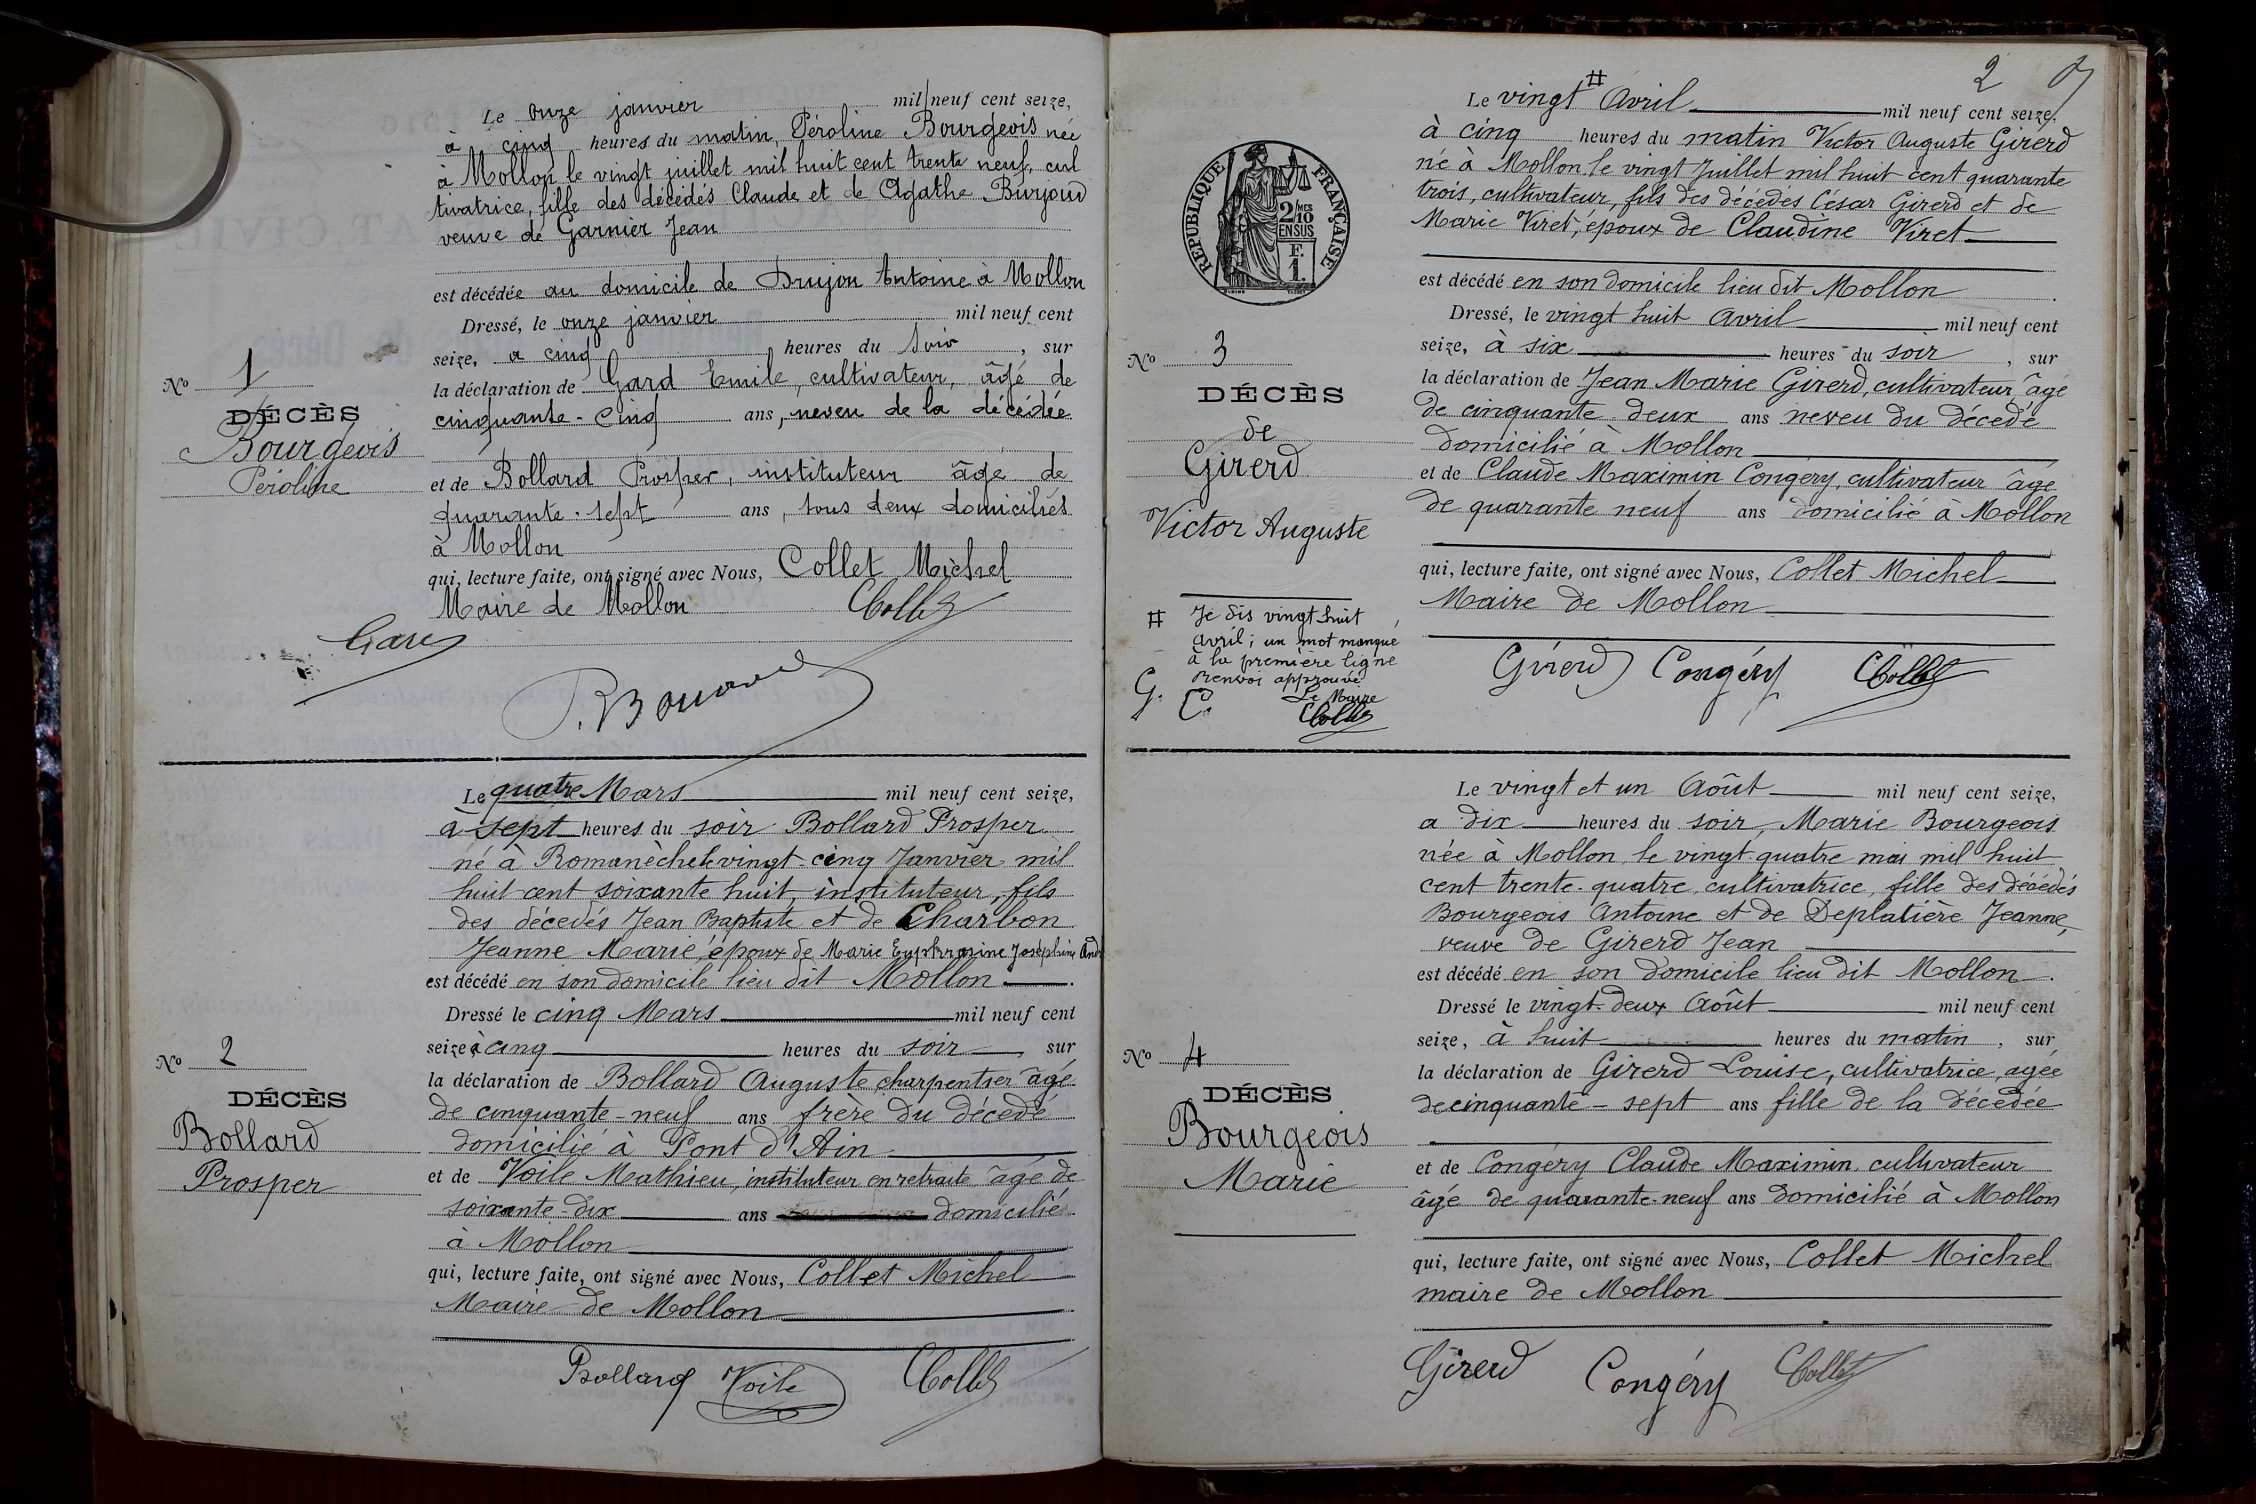 Le onze janvier mil neuf cent seize,
à cinq heures du matin, Péroline Bourgeois née
à Mollon le vingt juillet mil huit cent trente neuf, cul
tivatrice, fille des décédés Claude et de Agathe Burjoud
veuve de Garnier Jean
est décédée au domicile de Drujon Antoine à Mollon
Dressé, le onze janvier mil neuf cent
seize, à cinq heures du soir, sur
la déclaration de Gard Emile, cultivateur, âgé de
cinquante-cinq ans, neveu de la décédée
et de Bollard Prosper, instituteur âgé de
quarante-sept ans, tous deux domiciliés
à Mollon
qui, lecture faite, ont signé avec Nous, Collet Michel
Maire de Mollon Collet
Gard
P. Bollard
No 1
DÉCÈS
Bourgeois
Péroline
Le quatre Mars mil neuf cent seize,
à sept heures du soir Bollard Prosper
né à Romanèche le vingt-cinq Janvier mil
huit cent soixante huit, instituteur, fils
des décedés Jean Baptiste et de Charbon
Jeanne Marie, époux de Marie Euphrasine Joséphine
est décédé en son domicile lieu dit Mollon.
Dressé le cinq Mars mil neuf cent
seize à cinq heures du soir, sur
la déclaration de Bollard Auguste, charpentier âgé
de cinquante-neuf ans frère du décédé
domicilié à Pont d'Ain
et de Voile Mathieu, instituteur en retraite âgé de
soixante-dix ans domicilié
à Mollon
qui, lecture faite, ont signé avec Nous, Collet Michel
Maire de Mollon
Bollard Voile Collet
No 2
DÉCÈS
Bollard
Prosper
2
Le vingt # Avril mil neuf cent seize,
à cinq heures du matin Victor Auguste Girerd
né à Mollon le vingt Juillet mil huit cent quarante
trois, cultivateur, fils des décédés César Girerd et de
Marie Viret, époux de Claudine Viret
est décédé en son domicile lieu dit Mollon
Dressé, le vingt huit Avril mil neuf cent
seize, à six heures du soir, sur
la déclaration de Jean Marie Girerd, cultivateur âgé
de cinquante deux ans neveu du décedé
domicilié à Mollon
et de Claude Maximin Congéry, cultivateur âgé
de quarante neuf ans domicilié à Mollon
qui, lecture faite, ont signé avec Nous, Collet Michel
Maire de Mollon
Girerd Congéry Collet
RÉPUBLIQUE FRANÇAISE
2/MES
10
EN SUS
F.
1.
No 3
DÉCÈS
de
Girerd
Victor Auguste
# Je dis vingt huit
avril; un mot manque
à la première ligne
Renvoi approuvé
G. C. Le Maire
Collet
Le vingt et un Août mil neuf cent seize,
a dix heures du soir, Marie Bourgeois
née à Mollon le vingt-quatre mai mil huit
cent trente-quatre, cultivatrice, fille des décédés
Bourgeois Antoine et de Deplatière Jeanne,
veuve de Girerd Jean
est décédé en son domicile lieu dit Mollon.
Dressé le vingt-deux Août mil neuf cent
seize, à huit heures du matin, sur
la déclaration de Girerd Louise, cultivatrice, agée
de cinquante-sept ans fille de la décédée
et de Congéry Claude Maximin, cultivateur
âgé de quarante-neuf ans domicilié à Mollon
qui, lecture faite, ont signé avec Nous, Collet Michel
maire de Mollon
Girerd Congéry Collet
No 4
DÉCÈS
Bourgeois
Marie